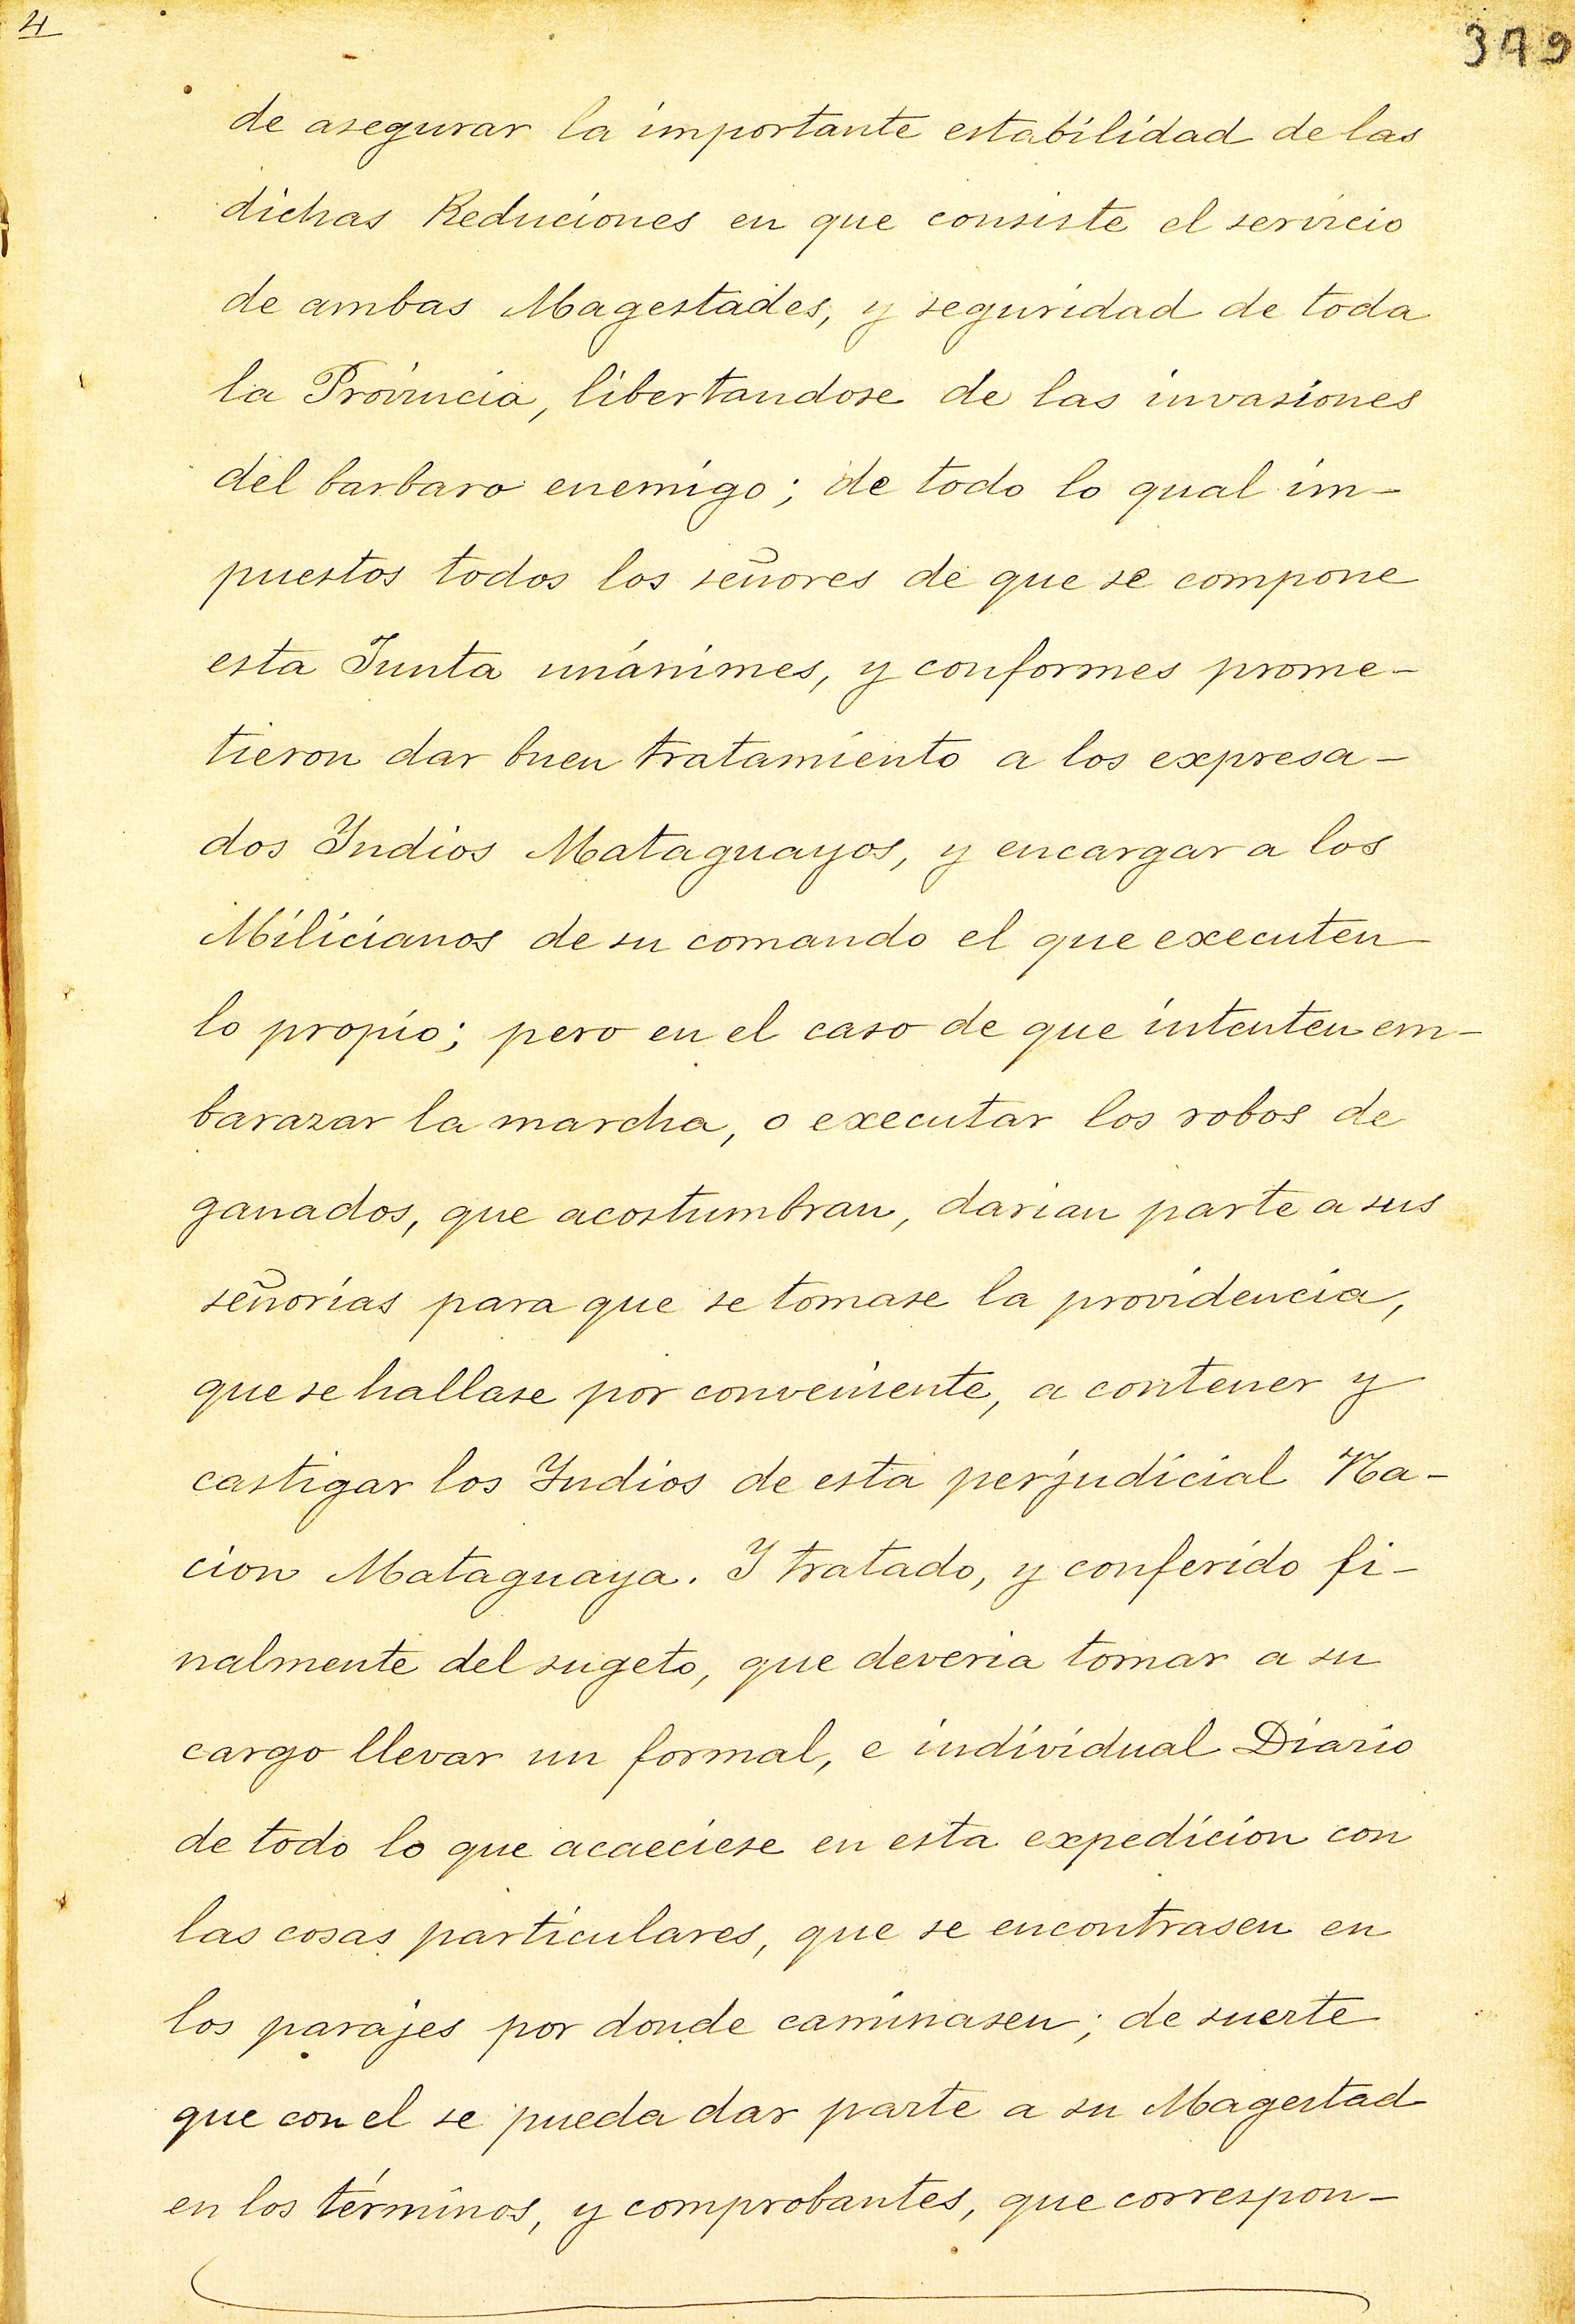 4
379
de asegurar la importante estabilidad de las
dichas Reduciones en que consiste el servicio
de ambas Magestades, y seguridad de toda
la Provincia, libertandose de las invasiones
del barbaro enemigo; de todo lo qual im-
puestos todos los señores de que se compone
esta Junta unánimes, y conformes prome-
tieron dar buen tratamiento a los expresa-
dos Indios Mataguayos, y encargar a los
Milicianos de su comando el que executen
lo propio; pero en el caso de que intenten em-
barazar la marcha, o executar los robos de
ganados, que acostumbran, darian parte a sus
señorías para que se tomase la providencia,
que se hallase por conveniente, a contener y
castigar los Indios de esta perjudicial Na-
cion Mataguaya. I tratado, y conferido fi-
nalmente del sugeto, que deveria tomar a su
cargo llevar un formal, e individual Diario
de todo lo que acaeciese en esta expedicion con
las cosas particulares, que se encontrasen en
los parajes por donde caminasen; de suerte
que con el se pueda dar parte a su Magestad
en los términos, y comprobantes, que correspon-